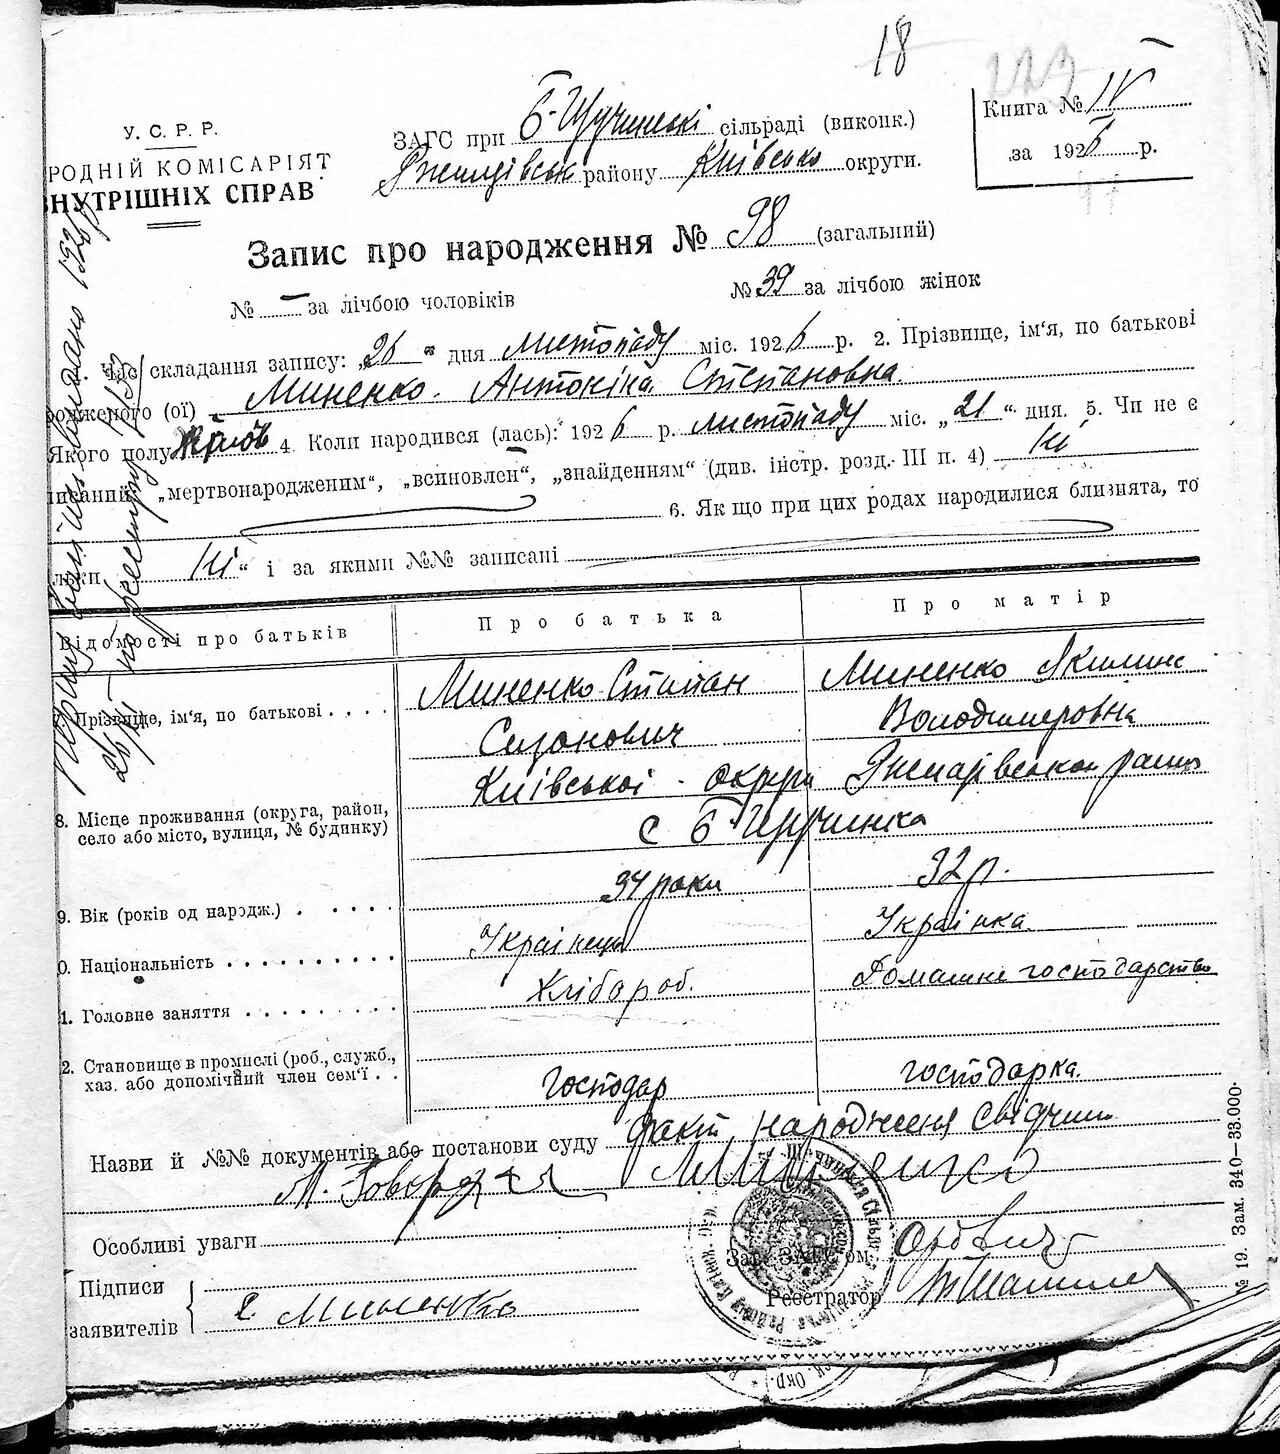 18
Книга № IV
за 1926 р.
У. С. Р. Р.
РОДНІЙ КОМІСАРІЯТ
ВНУТРІШНІХ СПРАВ
ЗАГС при сільраді (виконк.)
району Київсько округи.
Запис про народження № 98 (загальний)
№ – за лічбою чоловіків № 39 за лічбою жінок
Час складання запису: „26“ дня листопаду міс. 1926 р. 2. Прізвище, ім'я, по батькові
родженого (ої) Миненко Антоніна Степановна
Якого полу 4. Коли народився (лась): 1926 р. листопаду міс. „21“ дня. 5. Чи не є
писаний „мертвонародженим“, „всиновлен“, „знайденням“ (див. інстр. розд. III п. 4) Ні
6. Як що при цих родах народилися близнята, то
ільки Ні “ і за якими №№ записані
Відомості про батьків Про батька Про матір
7. Прізвище, ім'я, по батькові Миненко Степан Сизонович Миненко Якилина Володимеровна
8. Місце проживання (округа, район,
село або місто, вулиця, № будинку) Київської округи с Б-Щучинка
9. Вік (років од народж.) 34 роки 32 р.
0. Національність Українець Українка
1. Головне заняття Хлібороб. Домашнє господарство
2. Становище в промислі (роб., служб.,
хаз. або допоміжний член сем'ї Господар господарка.
Назви й №№ документів або постанови суду Факт народження свідчит
Особливі уваги
Зав. ЗАГС'ом
Підписи
заявителів Миненко
Реєстратор
№ 19. Зам. 340—33.000.